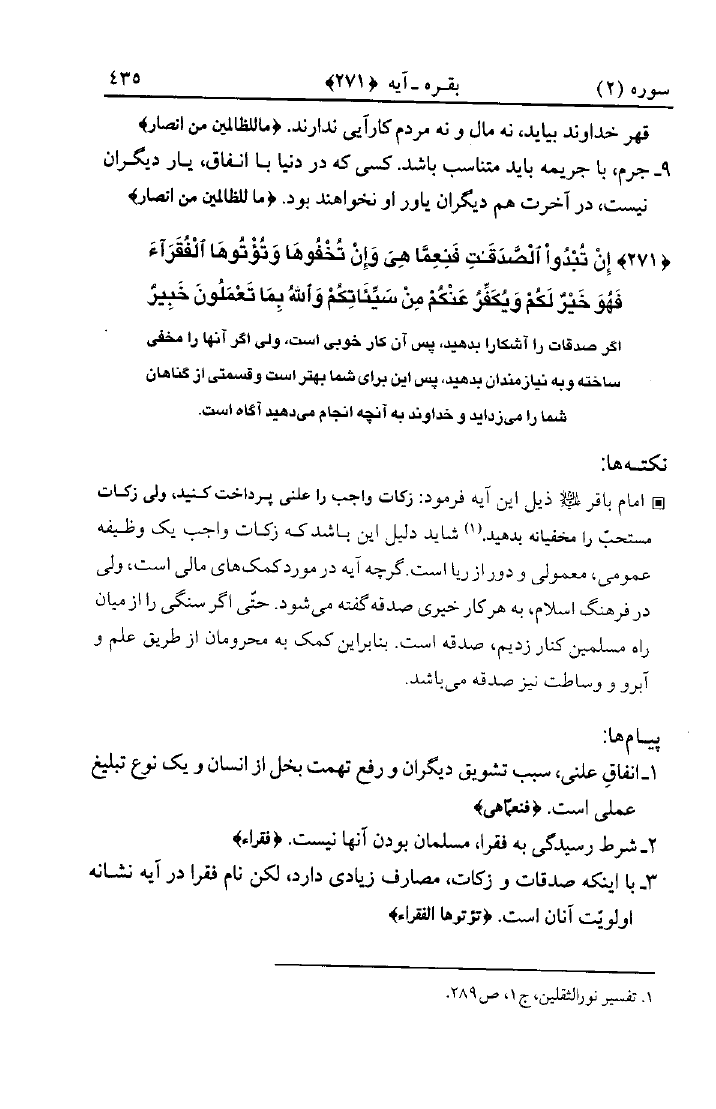 سوره (۲) بقره ـ آیه ﴿۲۷۱﴾ ٤٣٥
قهر خداوند بیاید، نه مال و نه مردم کارآیی ندارند. ﴿ماللظالمین من انصار﴾
۹ـ جرم، با جریمه باید متناسب باشد. کسی که در دنیا با انفاق، یار دیگران
نیست، در آخرت هم دیگران یاور او نخواهند بود. ﴿ما للظالمین من انصار﴾
﴿۲۷۱﴾ إِنْ تُبْدُواْ ٱلصَّدَقَـٰتِ فَنِعِمَّا هِىَ وَإِنْ تُخْفُوهَا وَتُؤْتُوهَا ٱلْفُقَرَآءَ
فَهُوَ خَيْرٌ لَكُمْ وَيُكَفِّرُ عَنْكُمْ مِنْ سَيِّئَاتِكُمْ وَٱللهُ بِمَا تَعْمَلُونَ خَبِيرٌ
اگر صدقات را آشکارا بدهید، پس آن کار خوبی است، ولی اگر آنها را مخفی
ساخته و به نیازمندان بدهید، پس این برای شما بهتر است و قسمتی از گناهان
شما را می‌زداید و خداوند به آنچه انجام می‌دهید آگاه است.
نکته‌ها:
▣ امام باقر علیه‌السلام ذیل این آیه فرمود: زکات واجب را علنی پرداخت کنید، ولی زکات
مستحبّ را مخفیانه بدهید.(۱) شاید دلیل این باشد که زکات واجب یک وظیفه
عمومی، معمولی و دور از ریا است. گرچه آیه در مورد کمک‌های مالی است، ولی
در فرهنگ اسلام، به هر کار خیری صدقه گفته می‌شود. حتّی اگر سنگی را از میان
راه مسلمین کنار زدیم، صدقه است. بنابراین کمک به محرومان از طریق علم و
آبرو و وساطت نیز صدقه می‌باشد.
پیام‌ها:
۱ـ انفاقِ علنی، سبب تشویق دیگران و رفع تهمت بخل از انسان و یک نوع تبلیغ
عملی است. ﴿فنعمّاهی﴾
۲ـ شرط رسیدگی به فقرا، مسلمان بودن آنها نیست. ﴿فقراء﴾
۳ـ با اینکه صدقات و زکات، مصارف زیادی دارد، لکن نام فقرا در آیه نشانه
اولویّت آنان است. ﴿تؤتوها الفقراء﴾
۱. تفسیر نورالثقلین، ج۱، ص۲۸۹.